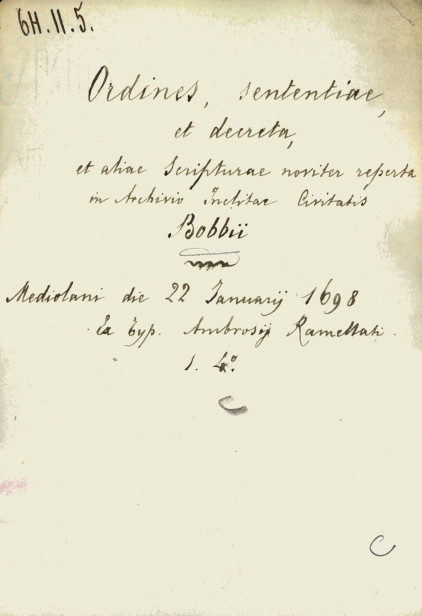 6H.II.5.
Ordines, sententiae,
et decreta,
et aliae Scripturae noviter reperta
in Archivio Inclitae Civitatis
Bobbii
Mediolani die 22 Januarij 1698
Ex Typ. Ambrosij Ramellati.
1. 4°.
C